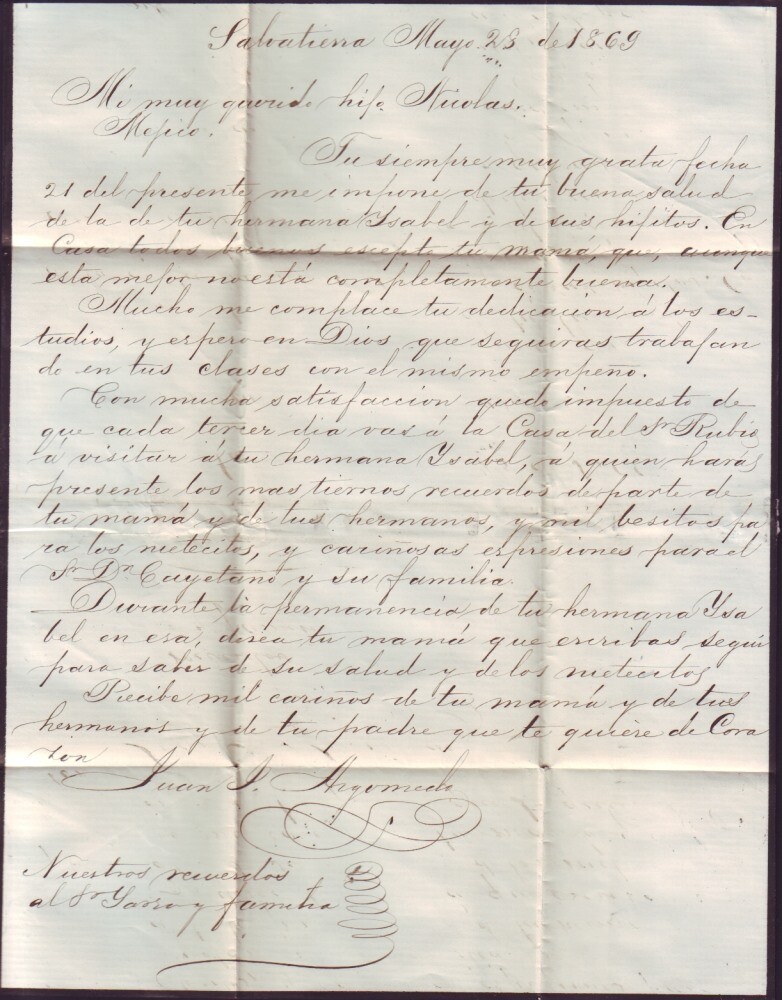 Salvatierra Mayo 23 de 1869
Mi muy querido hijo Nicolas.
Mejico.
Tu siempre muy grata fecha
21 del presente me impone de tu buena salud
de la de tu hermana Ysabel y de sus hijitos. En
Casa todos buenos escepto tu mamá, que, aunque
esta mejor no está completamente buena.
Mucho me complace tu dedicacion á los es-
tudios, y espero en Dios que seguiras trabajan
do en tus clases con el mismo empeño.
Con mucha satisfaccion quedo impuesto de
que cada tercer dia vas á la Casa del Sr Rubio
á visitar á tu hermana Ysabel, á quien harás
presente los mas tiernos recuerdos de parte de
tu mamá y de tus hermanos, y mil besitos pa
ra los nietecitos, y cariñosas espresiones para el
Sr Dn Cayetano y su familia.
Durante la permanencia de tu hermana Ysa
bel en esa, desea tu mamá que escribas seguir
para saber de su salud y de los nietecitos
Recibe mil cariños de tu mamá y de tus
hermanos y de tu padre que te quiere de Cora
zon
Juan J. Argomedo
Nuestros recuerdos
al Sr y familia